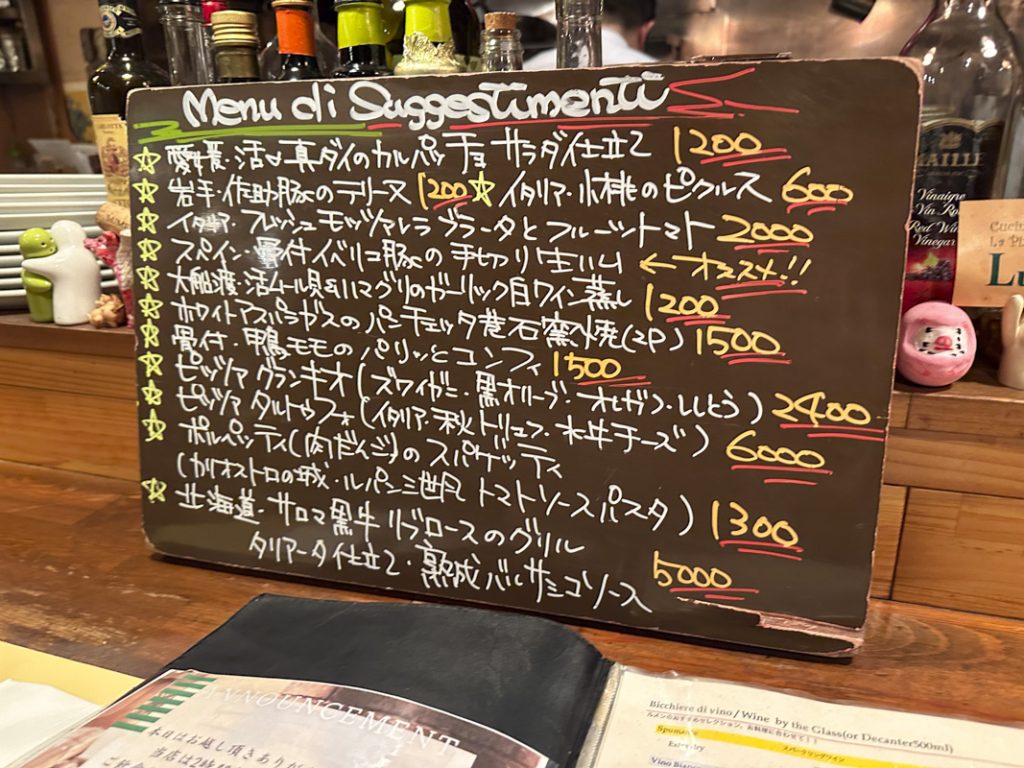 Menu di Suggestimenti
愛媛・活〆真ダイのカルパッチョ サラダ仕立て 1200
岩手・佐助豚のテリーヌ 1200 ☆イタリア・小桃のピクルス 600
イタリア・フレッシュモッツァレラ ブラータとフルーツトマト 2000
スペイン・骨付イベリコ豚の手切り生ハム ←オススメ!!
大船渡・活ムール貝&ハマグリのガーリック白ワイン蒸し 1200
ホワイトアスパラガスのパンチェッタ巻石窯焼(2P) 1500
骨付・鴨モモのパリッとコンフィ 1500
ピッツァ グランキオ(ズワイガニ・黒オリーブ・オレガノ・ししとう) 2400
ピッツァ タルトゥフォ(イタリア・秋トリュフ・水牛チーズ) 6000
ポルペッティ(肉だんご)のスパゲッティ
(カリオストロの城・ルパン三世風 トマトソースパスタ) 1300
北海道・サロマ黒牛リブロースのグリル
タリアータ仕立て・熟成バルサミコソース 5000
MAILLE
Vinaigre
Vin Ro
Red Wine
Vinegar
Cucin
La Pi
Lu
ANNOUNCEMENT
本日はお越し頂きありが
当店は2時
Bicchiere di vino/Wine by the Glass(or Decanter500ml)
Spuma
スパークリングワイン
Extra dry
Vino Bianc